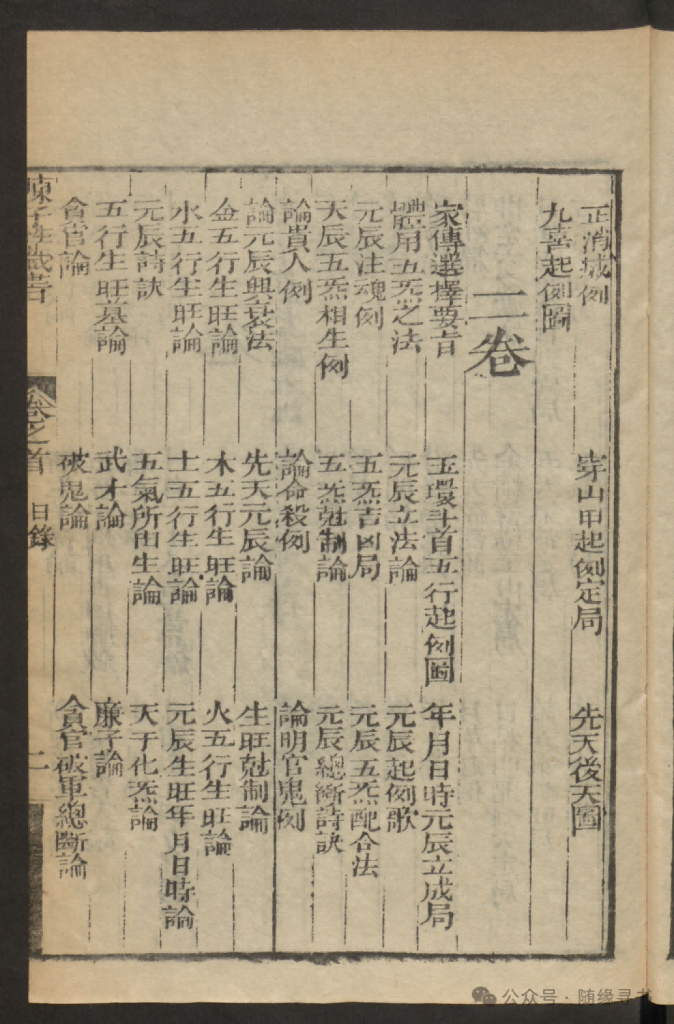 正消㓕例　穿山甲起例定局　先天後天圖
九喜起例圖
二卷
家傳選擇要旨　玉環斗首五行起例圖　年月日時元辰立成局
體用五炁之法　元辰立法論　元辰起例歌
元辰注魂例　五炁吉凶局　元辰五炁配合法
天辰五炁相生例　五炁尅制論　元辰總斷詩訣
論貴人例　論命殺例　論明官鬼例
論元辰興衰法　先天元辰論　生旺尅制論
金五行生旺論　木五行生旺論　火五行生旺論
水五行生旺論　土五行生旺論　元辰生旺年月日時論
元辰詩訣　五氣所由生論　天干化炁論
五行生旺墓論　武才論　廉子論
貪官論　破鬼論　貪官破軍總斷論
陳子性藏書　卷之首　目錄　二
公众号·随缘寻书